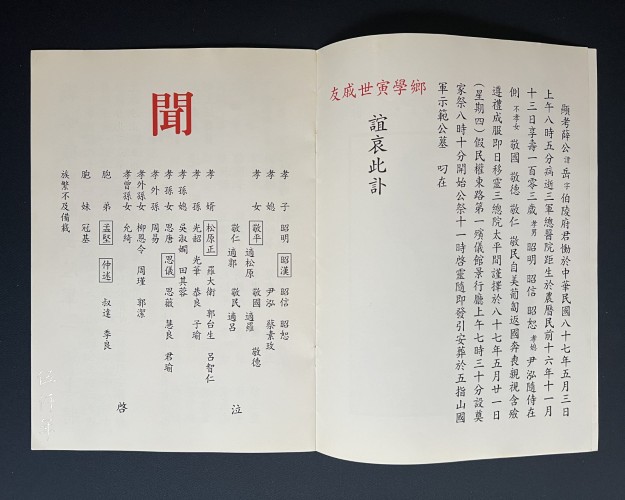 顯考薛公諱岳字伯陵府君慟於中華民國八十七年五月三日
上午八時五分病逝三軍總醫院距生於農曆民前十六年十一月
十三日享壽一百零三歲孝男昭明 昭信 昭恕 孝媳尹泓隨侍在
側 不孝女敬國 敬德 敬仁 敬民自美葡匈返國奔喪親視含殮
遵禮成服即日移靈三總院太平間謹擇於八十七年五月廿一日
(星期四)假民權東路第一殯儀館景行廳上午七時三十分設奠
家祭八時十分開始公祭十一時啓靈隨即發引安葬於五指山國
軍示範公墓 叨在
鄉學寅世戚友
誼哀此訃
聞
孝子 昭明 昭漢 昭信 昭恕
孝媳 尹泓 蔡素玫
孝女 敬平適松原 敬國適羅 敬德
敬仁適郭 敬民適呂
孝婿 松原正 羅大衛 郭台生 呂智仁
孝孫 光韶 光華 恭良 子瑜
孝孫媳 吳淑嫻 田其蓉
孝孫女 思唐 思儀 思薇 慧良 君瑜
孝外孫 周易
孝外孫女 柳恩令 周瑾 郭潔
孝曾孫女 允綺
胞弟 孟堅 仲述 叔達 季良
胞妹 冠基
族繁不及備載
泣
啓